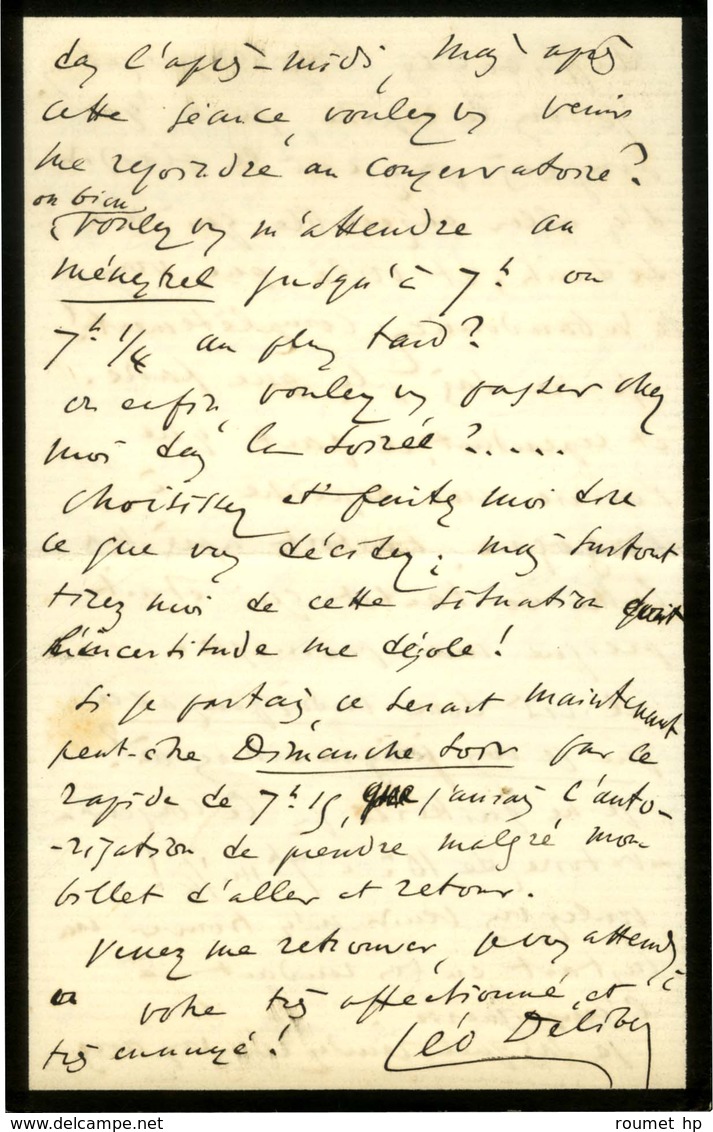 dans l'après-midi, mais après
cette séance, voulez vs venir
me rejoindre au conservatoire?
ou bien
voulez vs m'attendre au
ménestrel jusqu'à 7h. ou
7h. 1/4 au plus tard?
ou enfin, voulez vs passer chez
moi dans la soirée?.....
choisissez et faites moi dire
ce que vous décidez; mais surtout
tirez moi de cette situation dont
l'incertitude me désole!
Si je partais, ce serait maintenant
peut-être Dimanche soir par le
rapide de 7h. 15, que j'aurais l'auto-
-risation de prendre malgré mon
billet d'aller et retour.
Venez me retrouver, je vous attends,
votre très affectionné, et
très ennuyé!
Léo Delibes
roumet hp